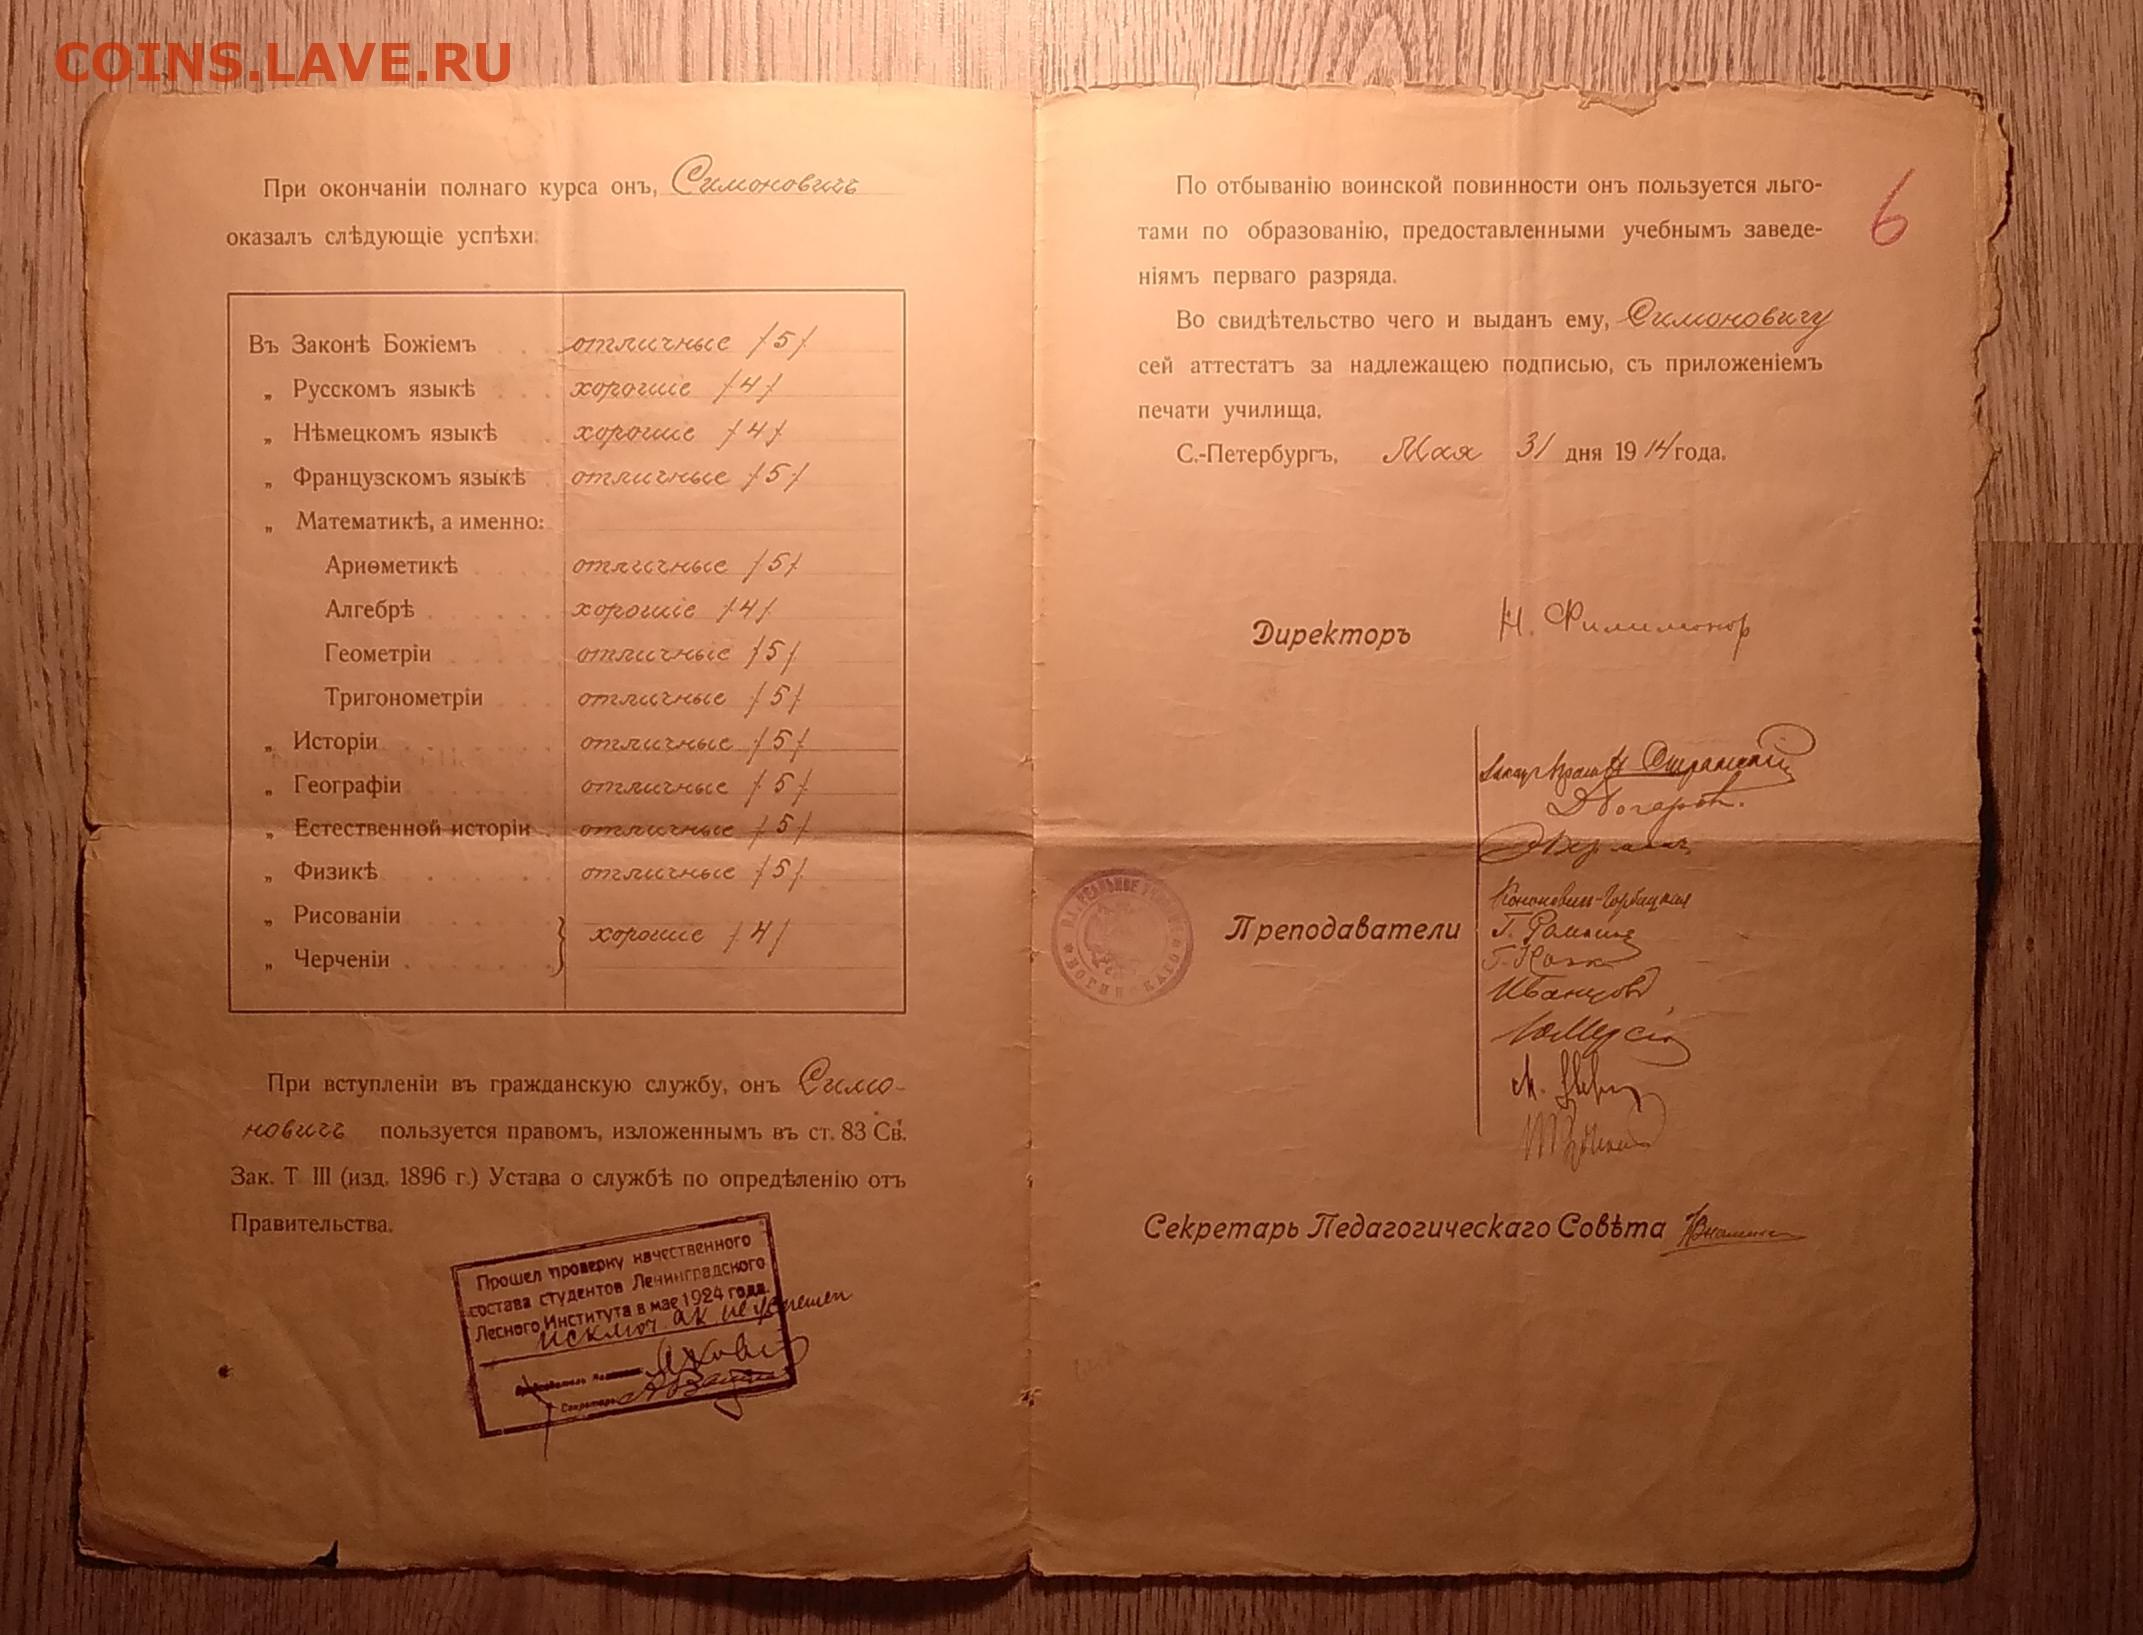 COINS.LAVE.RU
При окончаніи полнаго курса онъ, Симоновичъ
оказалъ слѣдующіе успѣхи:
Въ Законѣ Божіемъ . . отличные /5/
„ Русскомъ языкѣ . . . хорошіе /4/
„ Нѣмецкомъ языкѣ . . хорошіе /4/
„ Французскомъ языкѣ . отличные /5/
„ Математикѣ, а именно:
Ариѳметикѣ . . . . отличные /5/
Алгебрѣ . . . . . . хорошіе /4/
Геометріи . . . . . отличные /5/
Тригонометріи . . . отличные /5/
„ Исторіи . . . . . . . отличные /5/
„ Географіи . . . . . . отличные /5/
„ Естественной исторіи . отличные /5/
„ Физикѣ . . . . . . . отличные /5/
„ Рисованіи . . . . . .
хорошіе /4/
„ Черченіи . . . . . .
При вступленіи въ гражданскую службу, онъ Симо-
новичъ пользуется правомъ, изложеннымъ въ ст. 83 Св.
Зак. Т III (изд. 1896 г.) Устава о службѣ по опредѣленію отъ
Правительства.
Прошел проверку качественного
состава студентов Ленинградского
Лесного Института в мае 1924 года.
исключ. ак. неуспешен
Секретарь
6
По отбыванію воинской повинности онъ пользуется льго-
тами по образованію, предоставленными учебнымъ заведе-
ніямъ перваго разряда.
Во свидѣтельство чего и выданъ ему, Симоновичу
сей аттестатъ за надлежащею подписью, съ приложеніемъ
печати училища.
С.-Петербургъ, Мая 31 дня 1914 года.
Директоръ Н. Филимонов
Преподаватели
Иванцов
РЕАЛЬНОЕ УЧИЛИЩЕ
Секретарь Педагогическаго Совѣта